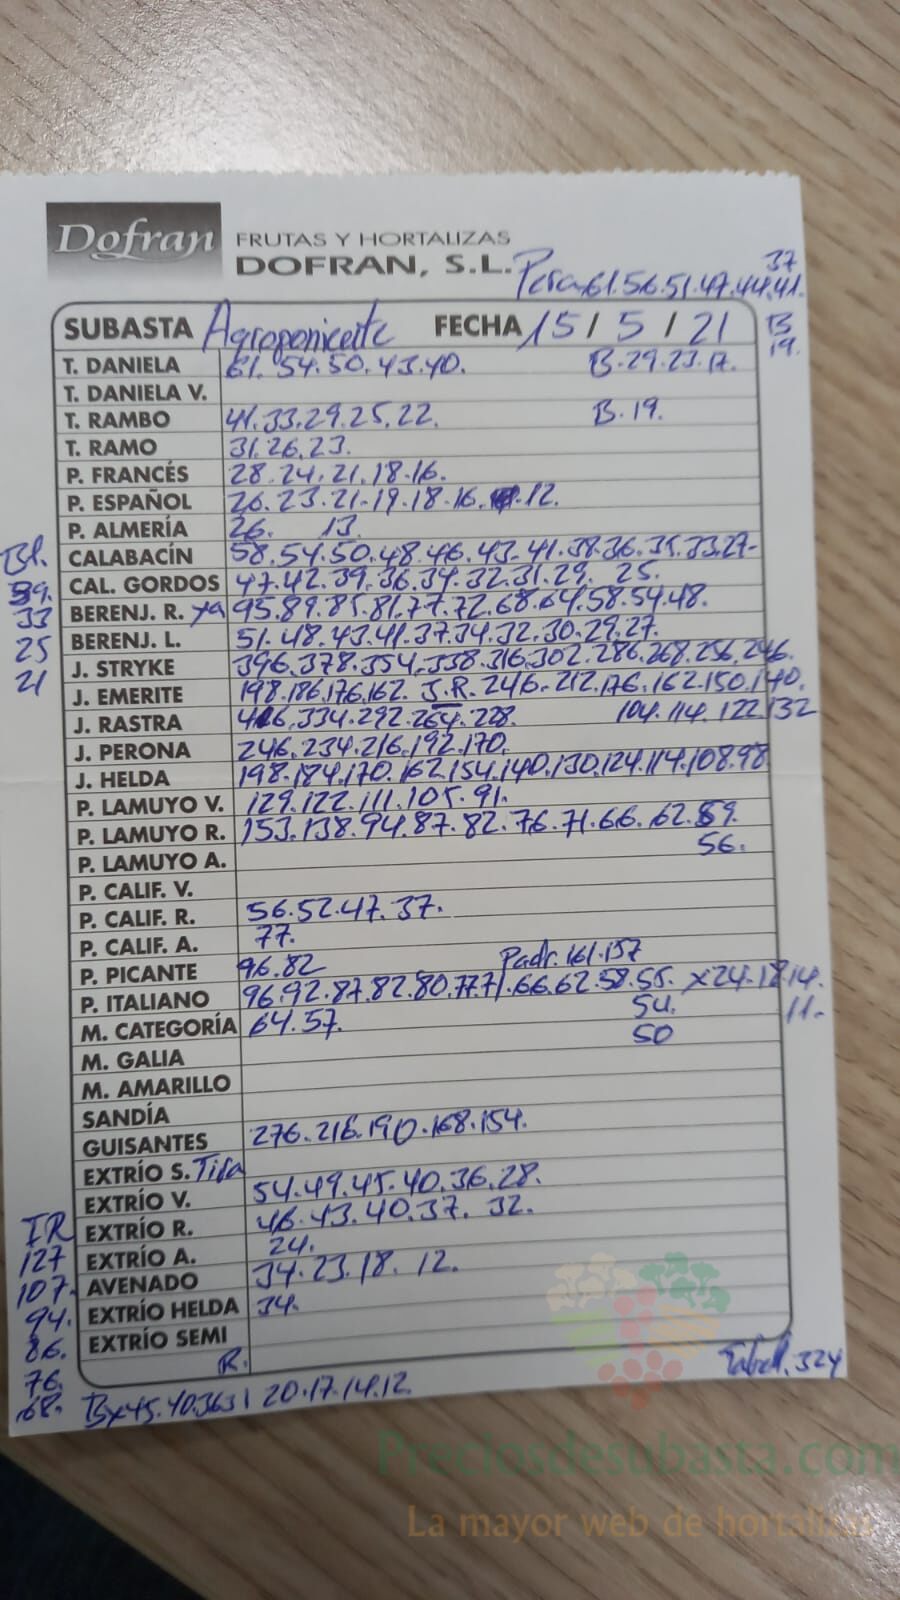 Dofran FRUTAS Y HORTALIZAS
DOFRAN, S.L. Pera 61.56.51.47.44.41. 37
SUBASTA Agroponiente FECHA 15/5/21 B 19.
T. DANIELA 61.54.50.43.40. B.29.23.17.
T. DANIELA V.
T. RAMBO 41.33.29.25.22. B.19.
T. RAMO 31.26.23.
P. FRANCÉS 28.24.21.18.16.
P. ESPAÑOL 26.23.21-19.18.16. 12.
P. ALMERÍA 26. 13.
Bl. CALABACÍN 58.54.50.48.46.43.41.38.36.35.33.27-
39. CAL. GORDOS 47.42.39.36.34.32.31.29. 25.
33 BERENJ. R. 95.89.85.81.77.72.68.64.58.54.48.
25 BERENJ. L. 51.48.43.41.37.34.32.30.29.27.
21 J. STRYKE 396.378.354.338.316.302.286.268.256.246.
J. EMERITE 198.186.176.162. J.R. 246.212.176.162.150.140.
J. RASTRA 334.292.264.228. 104.114.122.132
J. PERONA 246.234.216.192.170.
J. HELDA 198.184.170.162.154.140.130.124.114.108.98
P. LAMUYO V. 129.122.111.105.91.
P. LAMUYO R. 153.138.94.87.82.76.71.66.62.59.
P. LAMUYO A. 56.
P. CALIF. V.
P. CALIF. R. 56.52.47.37.
P. CALIF. A. 77.
P. PICANTE 96.82 Padr. 161.157
P. ITALIANO 96.92.87.82.80.77.71.66.62.58.55. x24.18.14.
M. CATEGORÍA 64.57. 54. 11.
M. GALIA 50
M. AMARILLO
SANDÍA
GUISANTES 276.216.190.168.154.
EXTRÍO S. Tira
EXTRÍO V. 54.49.45.40.36.28.
IR EXTRÍO R. 46.43.40.37. 32.
127 EXTRÍO A. 24.
107. AVENADO 34.23.18. 12.
94. EXTRÍO HELDA 34.
86. EXTRÍO SEMI
76. R. 324
68. Bx45.40.36.31 20.17.14.12.
Preciosdesubasta.com
La mayor web de hortalizas